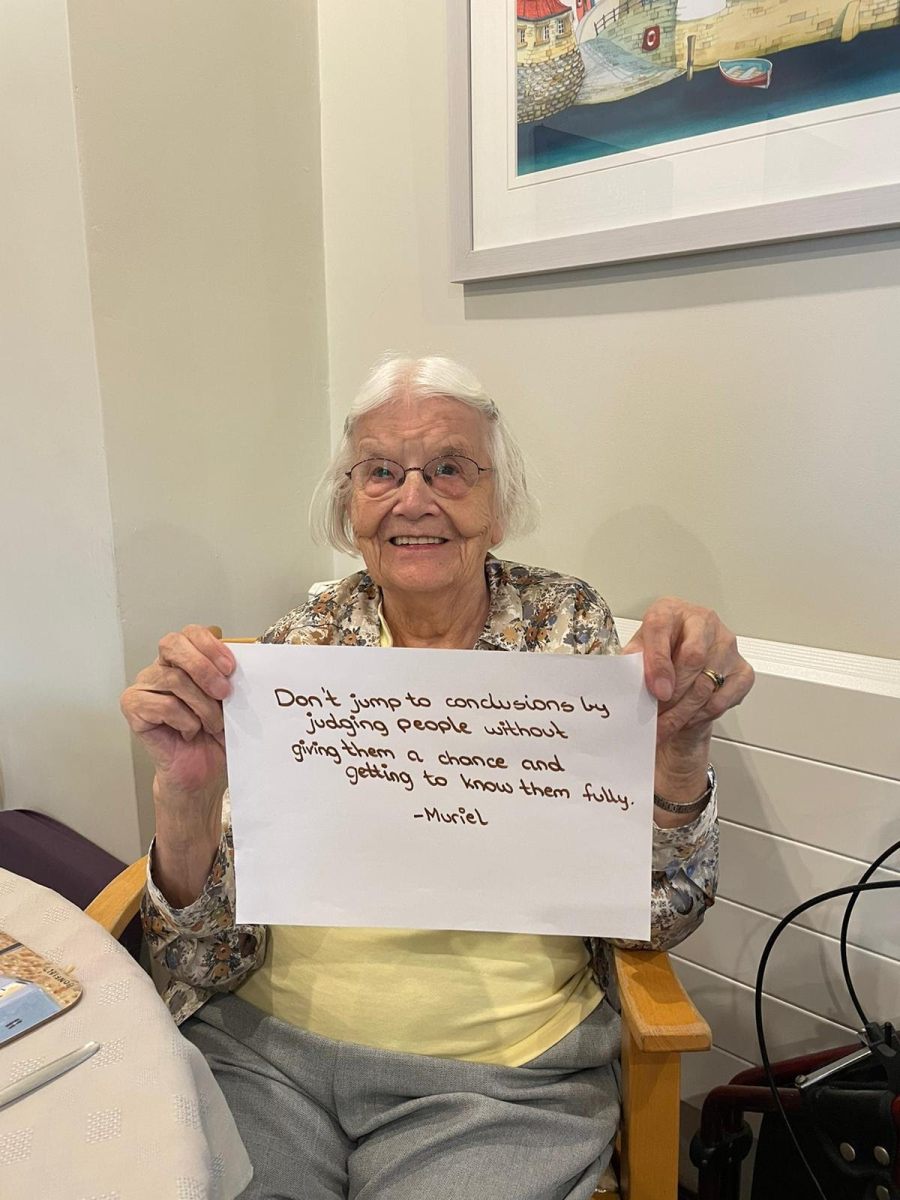 Don't jump to conclusions by
judging people without
giving them a chance and
getting to know them fully.
-Muriel